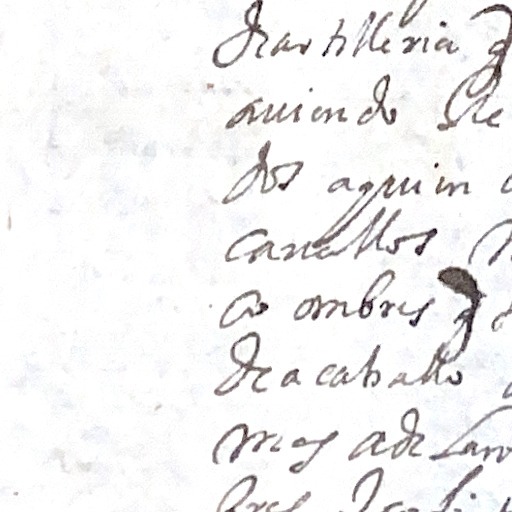 de artilleria q
auiendo
dos a quien
cauallos
co ombres q
de a caballo
mas adelan